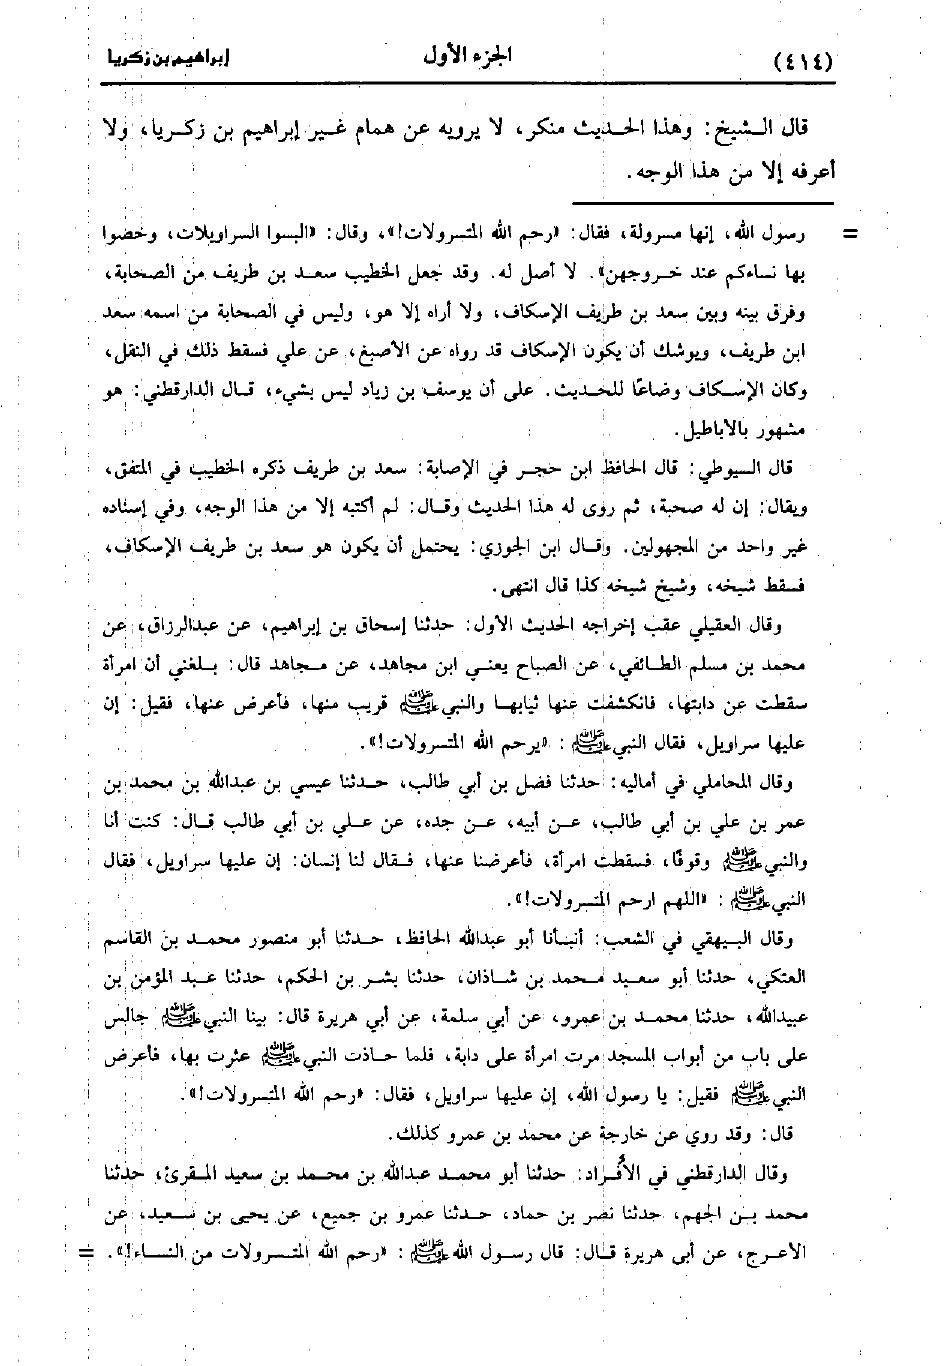 (٤١٤) الجزء الأول إبراهيم بن زكريا
قال الشيخ: وهذا الحديث منكر، لا يرويه عن همام غير إبراهيم بن زكريا، ولا
أعرفه إلا من هذا الوجه.
= رسول الله، إنها مسرولة، فقال: «رحم الله المتسرولات!»، وقال: «البسوا السراويلات، وخضوا
بها نساءكم عند خروجهن». لا أصل له. وقد جعل الخطيب سعد بن طريف من الصحابة،
وفرق بينه وبين سعد بن طريف الإسكاف، ولا أراه إلا هو، وليس في الصحابة من اسمه سعد
ابن طريف، ويوشك أن يكون الإسكاف قد رواه عن الأصبغ، عن علي فسقط ذلك في النقل،
وكان الإسكاف وضاعًا للحديث. على أن يوسف بن زياد ليس بشيء، قال الدارقطني: هو
مشهور بالأباطيل.
قال السيوطي: قال الحافظ ابن حجر في الإصابة: سعد بن طريف ذكره الخطيب في المتفق،
ويقال: إن له صحبة، ثم روى له هذا الحديث وقال: لم أكتبه إلا من هذا الوجه، وفي إسناده
غير واحد من المجهولين. وقال ابن الجوزي: يحتمل أن يكون هو سعد بن طريف الإسكاف،
فسقط شيخه، وشيخ شيخه كذا قال انتهى.
وقال العقيلي عقب إخراجه الحديث الأول: حدثنا إسحاق بن إبراهيم، عن عبدالرزاق، عن
محمد بن مسلم الطائفي، عن الصباح يعني ابن مجاهد، عن مجاهد قال: بلغني أن امرأة
سقطت عن دابتها، فانكشفت عنها ثيابها والنبي ﷺ قريب منها، فأعرض عنها، فقيل: إن
عليها سراويل، فقال النبي ﷺ: «يرحم الله المتسرولات!».
وقال المحاملي في أماليه: حدثنا فضل بن أبي طالب، حدثنا عيسي بن عبدالله بن محمد بن
عمر بن علي بن أبي طالب، عن أبيه، عن جده، عن علي بن أبي طالب قال: كنت أنا
والنبي ﷺ وقوفًا، فسقطت امرأة، فأعرضنا عنها، فقال لنا إنسان: إن عليها سراويل، فقال
النبي ﷺ: «اللهم ارحم المتسرولات!».
وقال البيهقي في الشعب: أنبأنا أبو عبدالله الحافظ، حدثنا أبو منصور محمد بن القاسم
العتكي، حدثنا أبو سعيد محمد بن شاذان، حدثنا بشر بن الحكم، حدثنا عبد المؤمن بن
عبيدالله، حدثنا محمد بن عمرو، عن أبي سلمة، عن أبي هريرة قال: بينا النبي ﷺ جالس
على باب من أبواب المسجد مرت امرأة على دابة، فلما حاذت النبي ﷺ عثرت بها، فأعرض
النبي ﷺ فقيل: يا رسول الله، إن عليها سراويل، فقال: «رحم الله المتسرولات!».
قال: وقد روي عن خارجة عن محمد بن عمرو كذلك.
وقال الدارقطني في الأفراد: حدثنا أبو محمد عبدالله بن محمد بن سعيد المقرئ، حدثنا
محمد بن الجهم، حدثنا نصر بن حماد، حدثنا عمرو بن جميع، عن يحيى بن سعيد، عن
الأعرج، عن أبي هريرة قال: قال رسول الله ﷺ: «رحم الله المتسرولات من النساء!». =